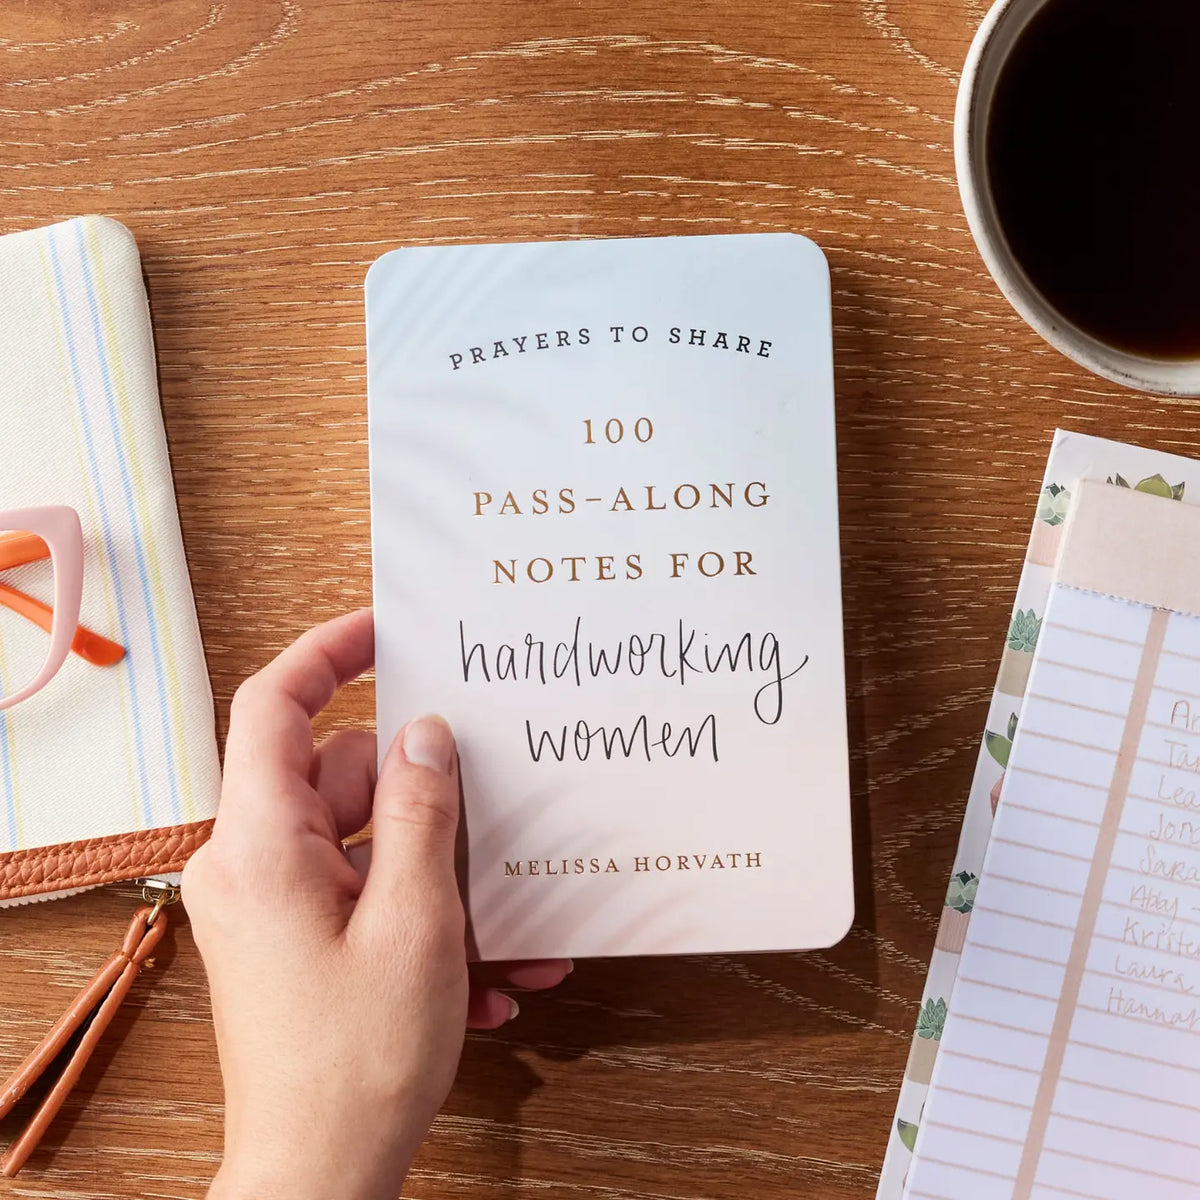 PRAYERS TO SHARE
100
PASS-ALONG
NOTES FOR
hardworking
women
MELISSA HORVATH
Abby
Laura
Hannah